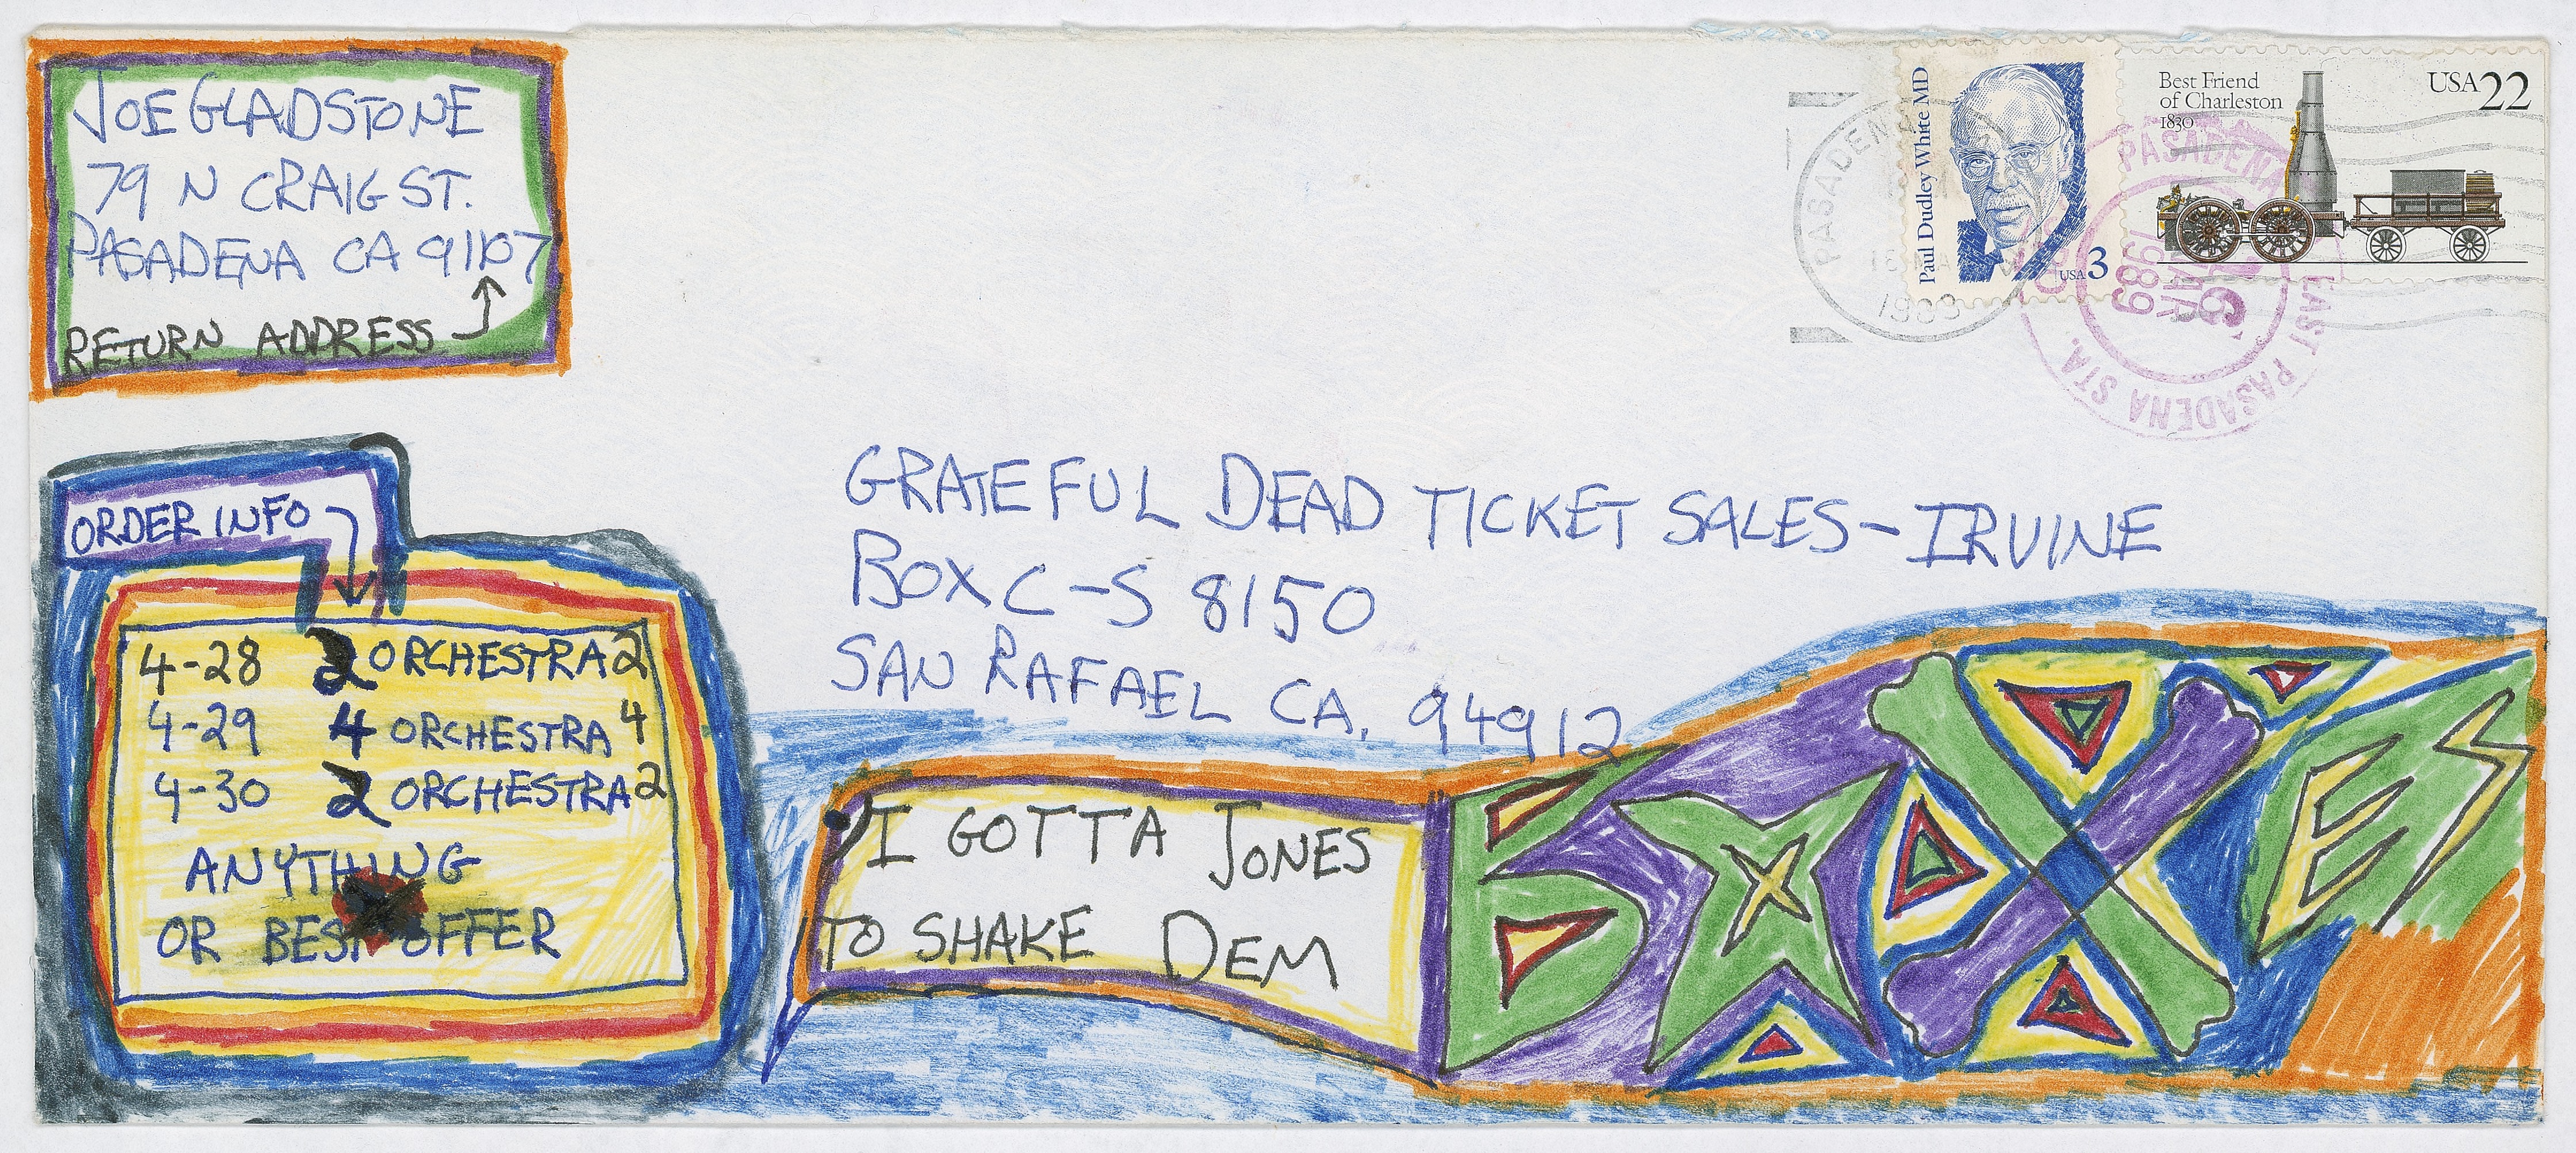 JOE GLADSTONE
79 N CRAIG ST.
PASADENA CA 91107
RETURN ADDRESS
Paul Dudley White MD
USA 3
Best Friend
of Charleston
1830
USA 22
PASADENA
1989
PASADENA
MAR
1989
EAST PASADENA STA.
GRATEFUL DEAD TICKET SALES - IRVINE
BOX C-S 8150
SAN RAFAEL CA. 94912
ORDER INFO
4-28 2 ORCHESTRA 2
4-29 4 ORCHESTRA 4
4-30 2 ORCHESTRA 2
ANYTHING
OR BEST OFFER
I GOTTA JONES
TO SHAKE DEM